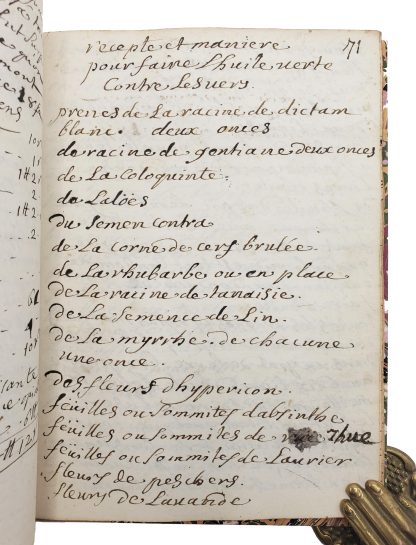 71
recepte et maniere
pour faire Lhuile verte
Contre Lesvers.
prenes de La racine de dictam
blanc. deux onces
de racine de gentiane deux onces
de La Coloquinte.
de Laloës
du Semen contra
de La corne de cerf brulée.
de La rhubarbe ou en place
de La racine de tanaisie.
de La Semence de Lin.
de La myrrhe. de chacune
une once.
des fleurs dhypericon.
feuilles ou Sommités dabsinthe
feuilles ou Sommites de rhue
feuilles ou Sommites de Laurier
fleurs de peschers.
fleurs de Lavande